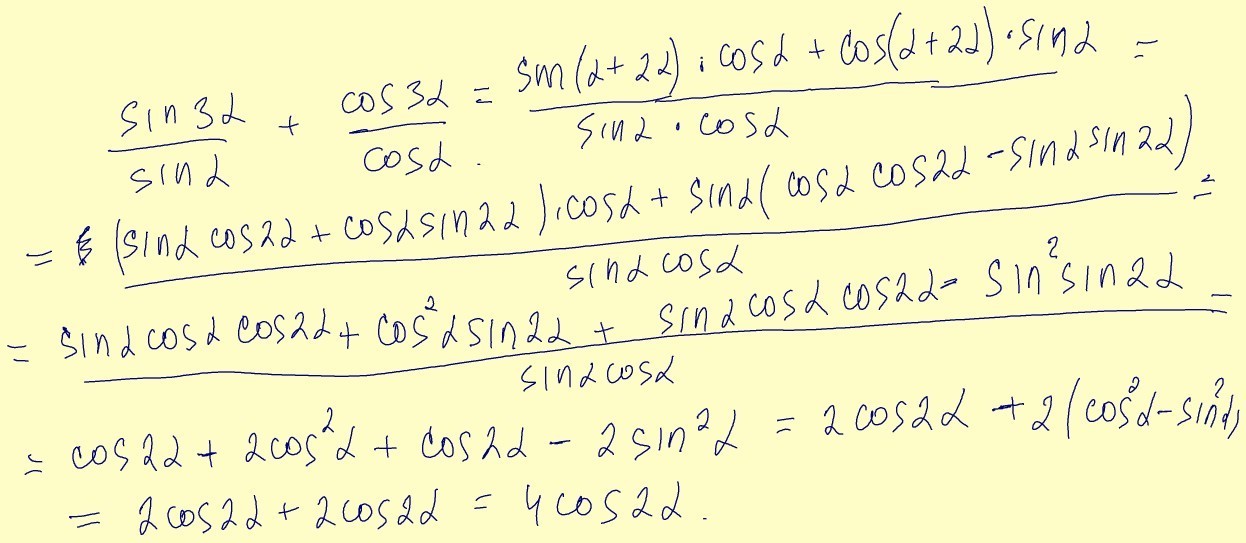 sin 3α / sin α + cos 3α / cos α = (sin(α + 2α) · cos α + cos(α + 2α) · sin α) / (sin α · cos α) =
= ((sin α cos 2α + cos α sin 2α) · cos α + sin α (cos α cos 2α - sin α sin 2α)) / (sin α cos α) =
= (sin α cos α cos 2α + cos² α sin 2α + sin α cos α cos 2α - sin² sin 2α) / (sin α cos α) =
= cos 2α + 2cos² α + cos 2α - 2 sin² α = 2 cos 2α + 2(cos² α - sin² α)
= 2 cos 2α + 2 cos 2α = 4 cos 2α.